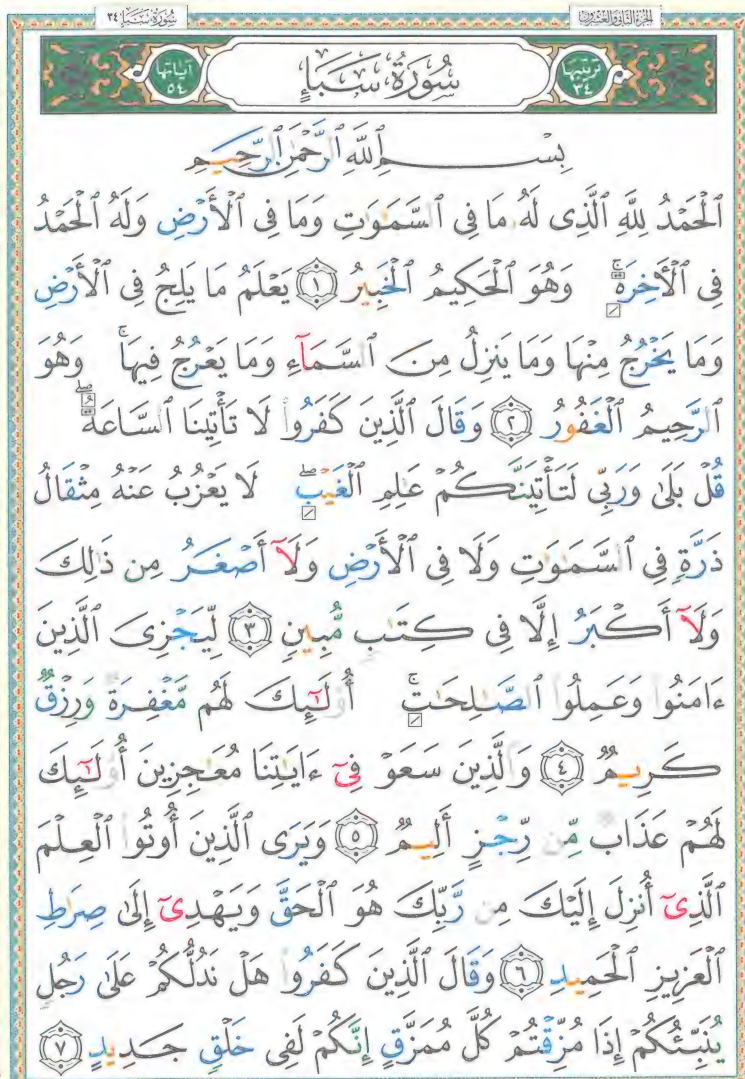 الجزء الثاني والعشرون
سُورَةُ سَبَإٍ ٣٤
ترتيبها ٣٤
سُورَةُ سَبَإٍ
آياتها ٥٤
بِسْمِ ٱللَّهِ ٱلرَّحْمَٰنِ ٱلرَّحِيمِ
ٱلْحَمْدُ لِلَّهِ ٱلَّذِى لَهُۥ مَا فِى ٱلسَّمَٰوَٰتِ وَمَا فِى ٱلْأَرْضِ وَلَهُ ٱلْحَمْدُ
فِى ٱلْأَخِرَةِ ۚ وَهُوَ ٱلْحَكِيمُ ٱلْخَبِيرُ ۝١ يَعْلَمُ مَا يَلِجُ فِى ٱلْأَرْضِ
وَمَا يَخْرُجُ مِنْهَا وَمَا يَنزِلُ مِنَ ٱلسَّمَآءِ وَمَا يَعْرُجُ فِيهَا ۚ وَهُوَ
ٱلرَّحِيمُ ٱلْغَفُورُ ۝٢ وَقَالَ ٱلَّذِينَ كَفَرُوا۟ لَا تَأْتِينَا ٱلسَّاعَةُ ۖ
قُلْ بَلَىٰ وَرَبِّى لَتَأْتِيَنَّكُمْ عَٰلِمِ ٱلْغَيْبِ ۖ لَا يَعْزُبُ عَنْهُ مِثْقَالُ
ذَرَّةٍ فِى ٱلسَّمَٰوَٰتِ وَلَا فِى ٱلْأَرْضِ وَلَآ أَصْغَرُ مِن ذَٰلِكَ
وَلَآ أَكْبَرُ إِلَّا فِى كِتَٰبٍ مُّبِينٍ ۝٣ لِّيَجْزِىَ ٱلَّذِينَ
ءَامَنُوا۟ وَعَمِلُوا۟ ٱلصَّٰلِحَٰتِ ۚ أُو۟لَٰٓئِكَ لَهُم مَّغْفِرَةٌ وَرِزْقٌ
كَرِيمٌ ۝٤ وَٱلَّذِينَ سَعَوْ فِىٓ ءَايَٰتِنَا مُعَٰجِزِينَ أُو۟لَٰٓئِكَ
لَهُمْ عَذَابٌ مِّن رِّجْزٍ أَلِيمٌ ۝٥ وَيَرَى ٱلَّذِينَ أُوتُوا۟ ٱلْعِلْمَ
ٱلَّذِىٓ أُنزِلَ إِلَيْكَ مِن رَّبِّكَ هُوَ ٱلْحَقَّ وَيَهْدِىٓ إِلَىٰ صِرَٰطِ
ٱلْعَزِيزِ ٱلْحَمِيدِ ۝٦ وَقَالَ ٱلَّذِينَ كَفَرُوا۟ هَلْ نَدُلُّكُمْ عَلَىٰ رَجُلٍ
يُنَبِّئُكُمْ إِذَا مُزِّقْتُمْ كُلَّ مُمَزَّقٍ إِنَّكُمْ لَفِى خَلْقٍ جَدِيدٍ ۝٧